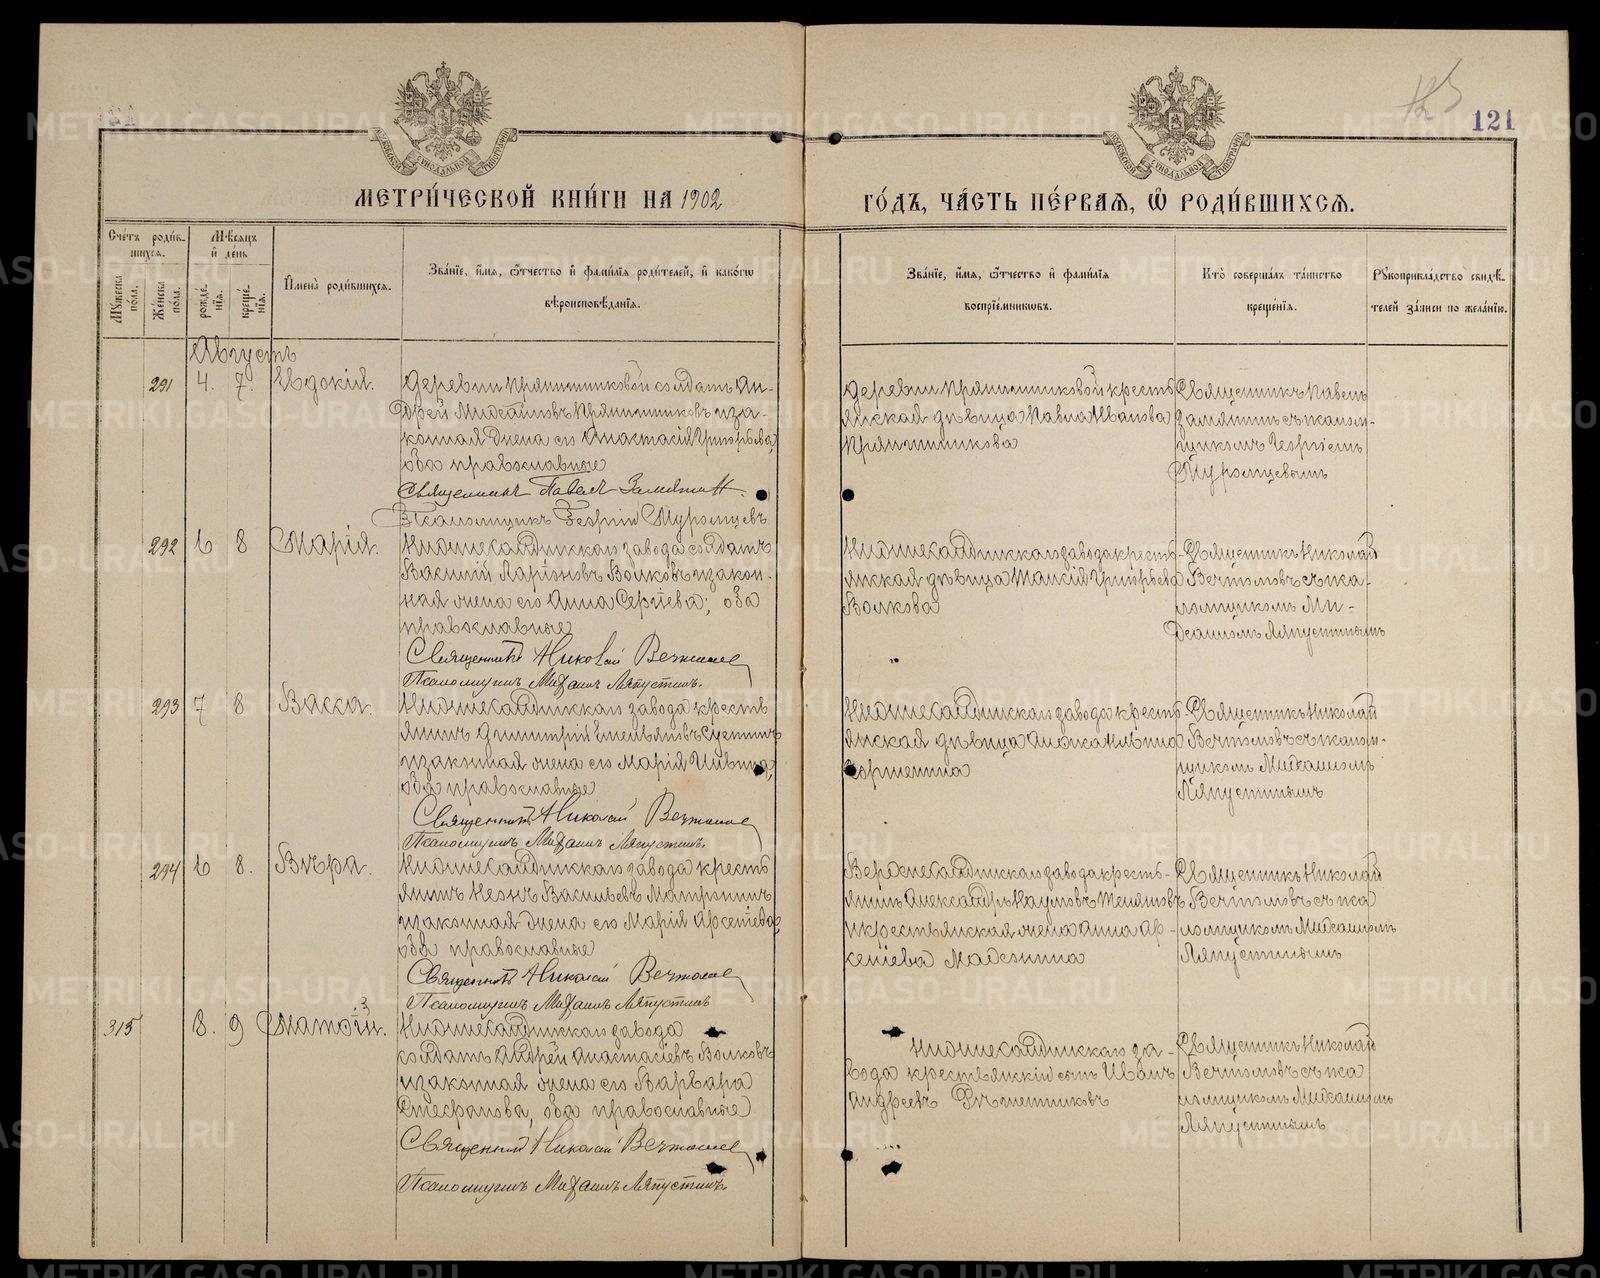 121
МЕТРИ́ЧЕСКОЙ КНИ́ГИ НА 1902
ГО́ДЪ, ЧА́СТЬ ПЕ́РВАѦ, Ѽ РОДИ́ВШИХСѦ.
Счетъ родив-
шихся.
Мужеска пола.
Женска пола.
Мѣсяцъ и день
рожде-
нія.
креще-
нія.
Имена родившихся.
Званіе, имя, отчество и фамилія родителей, и какогѡ
вѣроисповѣданія.
Званіе, имя, отчество и фамилія
воспріемниковъ.
Кто совершалъ таинство
крещенія.
Рукоприкладство свидѣ-
телей записи по желанію.
Августъ
291 4. 7. Евдокія.
Деревни Прянишниковой солдатъ Ан-
дрей Михаиловъ Прянишниковъ и за-
конная жена его Анастасія Григорьева,
оба православные
Священникъ Павелъ Замятин
Псаломщикъ Георгій Муромцевъ
Деревни Прянишниковой кресть-
янская дѣвица Павла Иванова
Прянишникова
Священникъ Павелъ
Замятинъ съ псалом-
щикомъ Георгіемъ
Муромцевымъ
292 6 8 Марія.
Нижнесалдинскаго завода солдатъ
Василій Ларіоновъ Волковъ и закон-
ная жена его Анна Сергіева; оба
православные
Священникъ Николай
Псаломщикъ Михаилъ Ляпустинъ.
Нижнесалдинскаго завода кресть-
янская дѣвица Таисія Григорьева
Волкова
Священникъ Николай
съ пса-
ломщикомъ Ми-
хаиломъ Ляпустинымъ
293 7 8 Васса.
Нижнесалдинскаго завода кресть-
янинъ Димитрій Емельяновъ
и законная жена его Марія
оба православные
Священникъ Николай
Псаломщикъ Михаилъ Ляпустинъ.
Нижнесалдинскаго завода кресть-
янская дѣвица
Священникъ Николай
съ псалом-
щикомъ Михаиломъ
Ляпустинымъ
294 6 8. Вѣра.
Нижнесалдинскаго завода кресть-
янинъ Васильевъ
и законная жена его Марія Арсеніева,
оба православные
Священникъ Николай
Псаломщикъ Михаилъ Ляпустинъ
Верхнесалдинскаго завода кресть-
янинъ Александръ Наумовъ
и крестьянская жена Анна Ар-
сеніева
Священникъ Николай
съ пса-
ломщикомъ Михаиломъ
Ляпустинымъ
315 8. 9
Нижнесалдинскаго завода
солдатъ Андрей Анастасіевъ Волковъ
и законная жена его Варвара
Стефанова, оба православные
Священникъ Николай
Псаломщикъ Михаилъ Ляпустинъ.
Нижнесалдинскаго за-
вода крестьянскій сынъ Иванъ
Андреевъ
Священникъ Николай
съ пса-
ломщикомъ Михаиломъ
Ляпустинымъ
METRIKI.GASO-URAL.RU